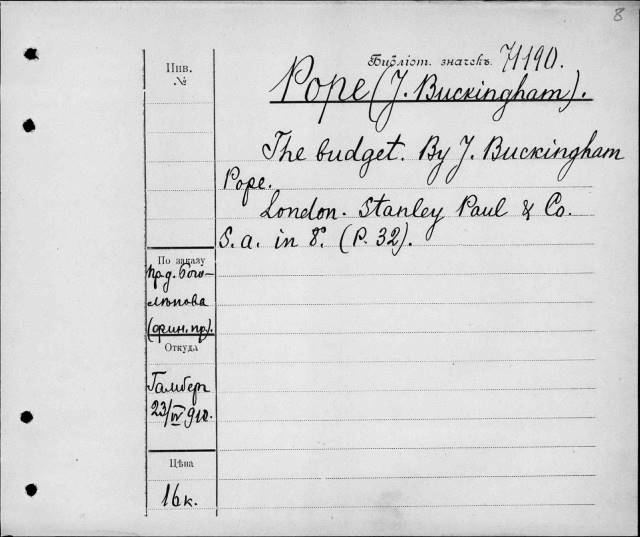 8
Инв.
№
Библіот. значекъ 71190.
Pope (J. Buckingham).
The budget. By J. Buckingham
Pope.
London. Stanley Paul & Co.
S. a. in 8°. (P. 32).
По заказу
прд. Бого-
лѣпова
(фин. пр).
Откуда
Гамберг
23/IV 910.
Цѣна
16 к.